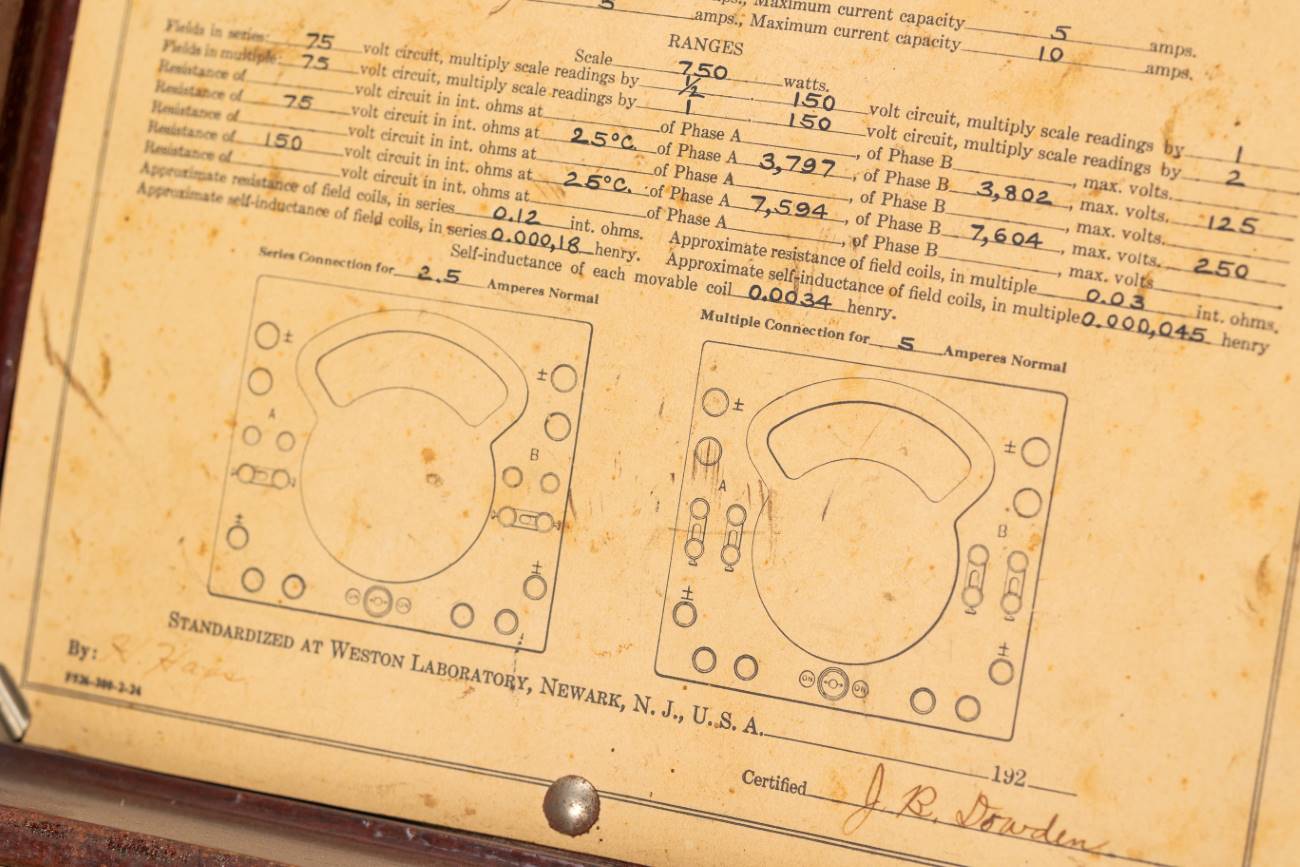 amps., Maximum current capacity 5 amps.
5 amps., Maximum current capacity 10 amps.
RANGES
Scale 750 watts.
Fields in series: 75 volt circuit, multiply scale readings by 1/2 150 volt circuit, multiply scale readings by 1
Fields in multiple: 75 volt circuit, multiply scale readings by 1 150 volt circuit, multiply scale readings by 2
Resistance of volt circuit in int. ohms at of Phase A , of Phase B , max. volts.
Resistance of 75 volt circuit in int. ohms at 25°C. of Phase A 3,797 , of Phase B 3,802 , max. volts. 125
Resistance of volt circuit in int. ohms at of Phase A , of Phase B , max. volts.
Resistance of 150 volt circuit in int. ohms at 25°C. of Phase A 7,594 , of Phase B 7,604 , max. volts. 250
Resistance of volt circuit in int. ohms at of Phase A , of Phase B , max. volts
Approximate resistance of field coils, in series 0.12 int. ohms. Approximate resistance of field coils, in multiple 0.03 int. ohms.
Approximate self-inductance of field coils, in series 0.000,18 henry. Approximate self-inductance of field coils, in multiple 0.000,045 henry
Self-inductance of each movable coil 0.0034 henry.
Series Connection for 2.5 Amperes Normal
Multiple Connection for 5 Amperes Normal
±
±
A
B
±
±
±
±
A
B
±
±
ON
ON
STANDARDIZED AT WESTON LABORATORY, NEWARK, N. J., U. S. A. 192
By:
Certified J. R. Dowden